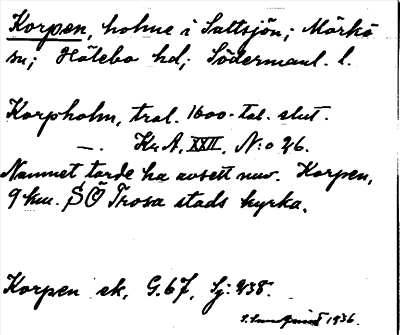 Korpen, holme i Saltsjön; Mörkö
sn; Hölebo hd; Södermanl. l.
Korpholm, trol. 1600-tal. slut.
—. Kr.A, XXII, N:o 26.
Namnet torde ha avsett nuv. Korpen,
9 km. SÖ Trosa stads kyrka.
Korpen ek. G.67, Sj: 938.
1936.